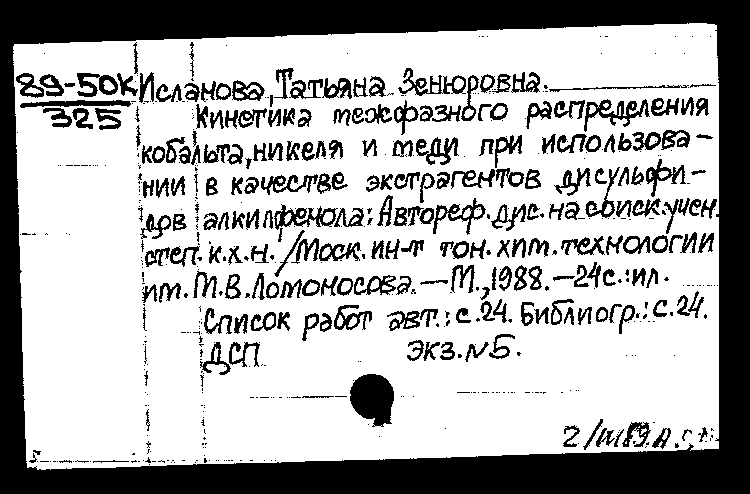 89-50К Исланова, Татьяна Зенюровна.
325 Кинетика межфазного распределения
кобальта, никеля и меди при использова-
нии в качестве экстрагентов дисульфи-
дов алкилфенола: Автореф. дис. на соиск. учен.
степ. к.х.н. /Моск. ин-т тон. хим. технологии
им. М.В. Ломоносова. — М., 1988. — 24с.: ил.
Список работ авт.: с. 24. Библиогр.: с. 24.
ДСП экз. №Б.
2/III89